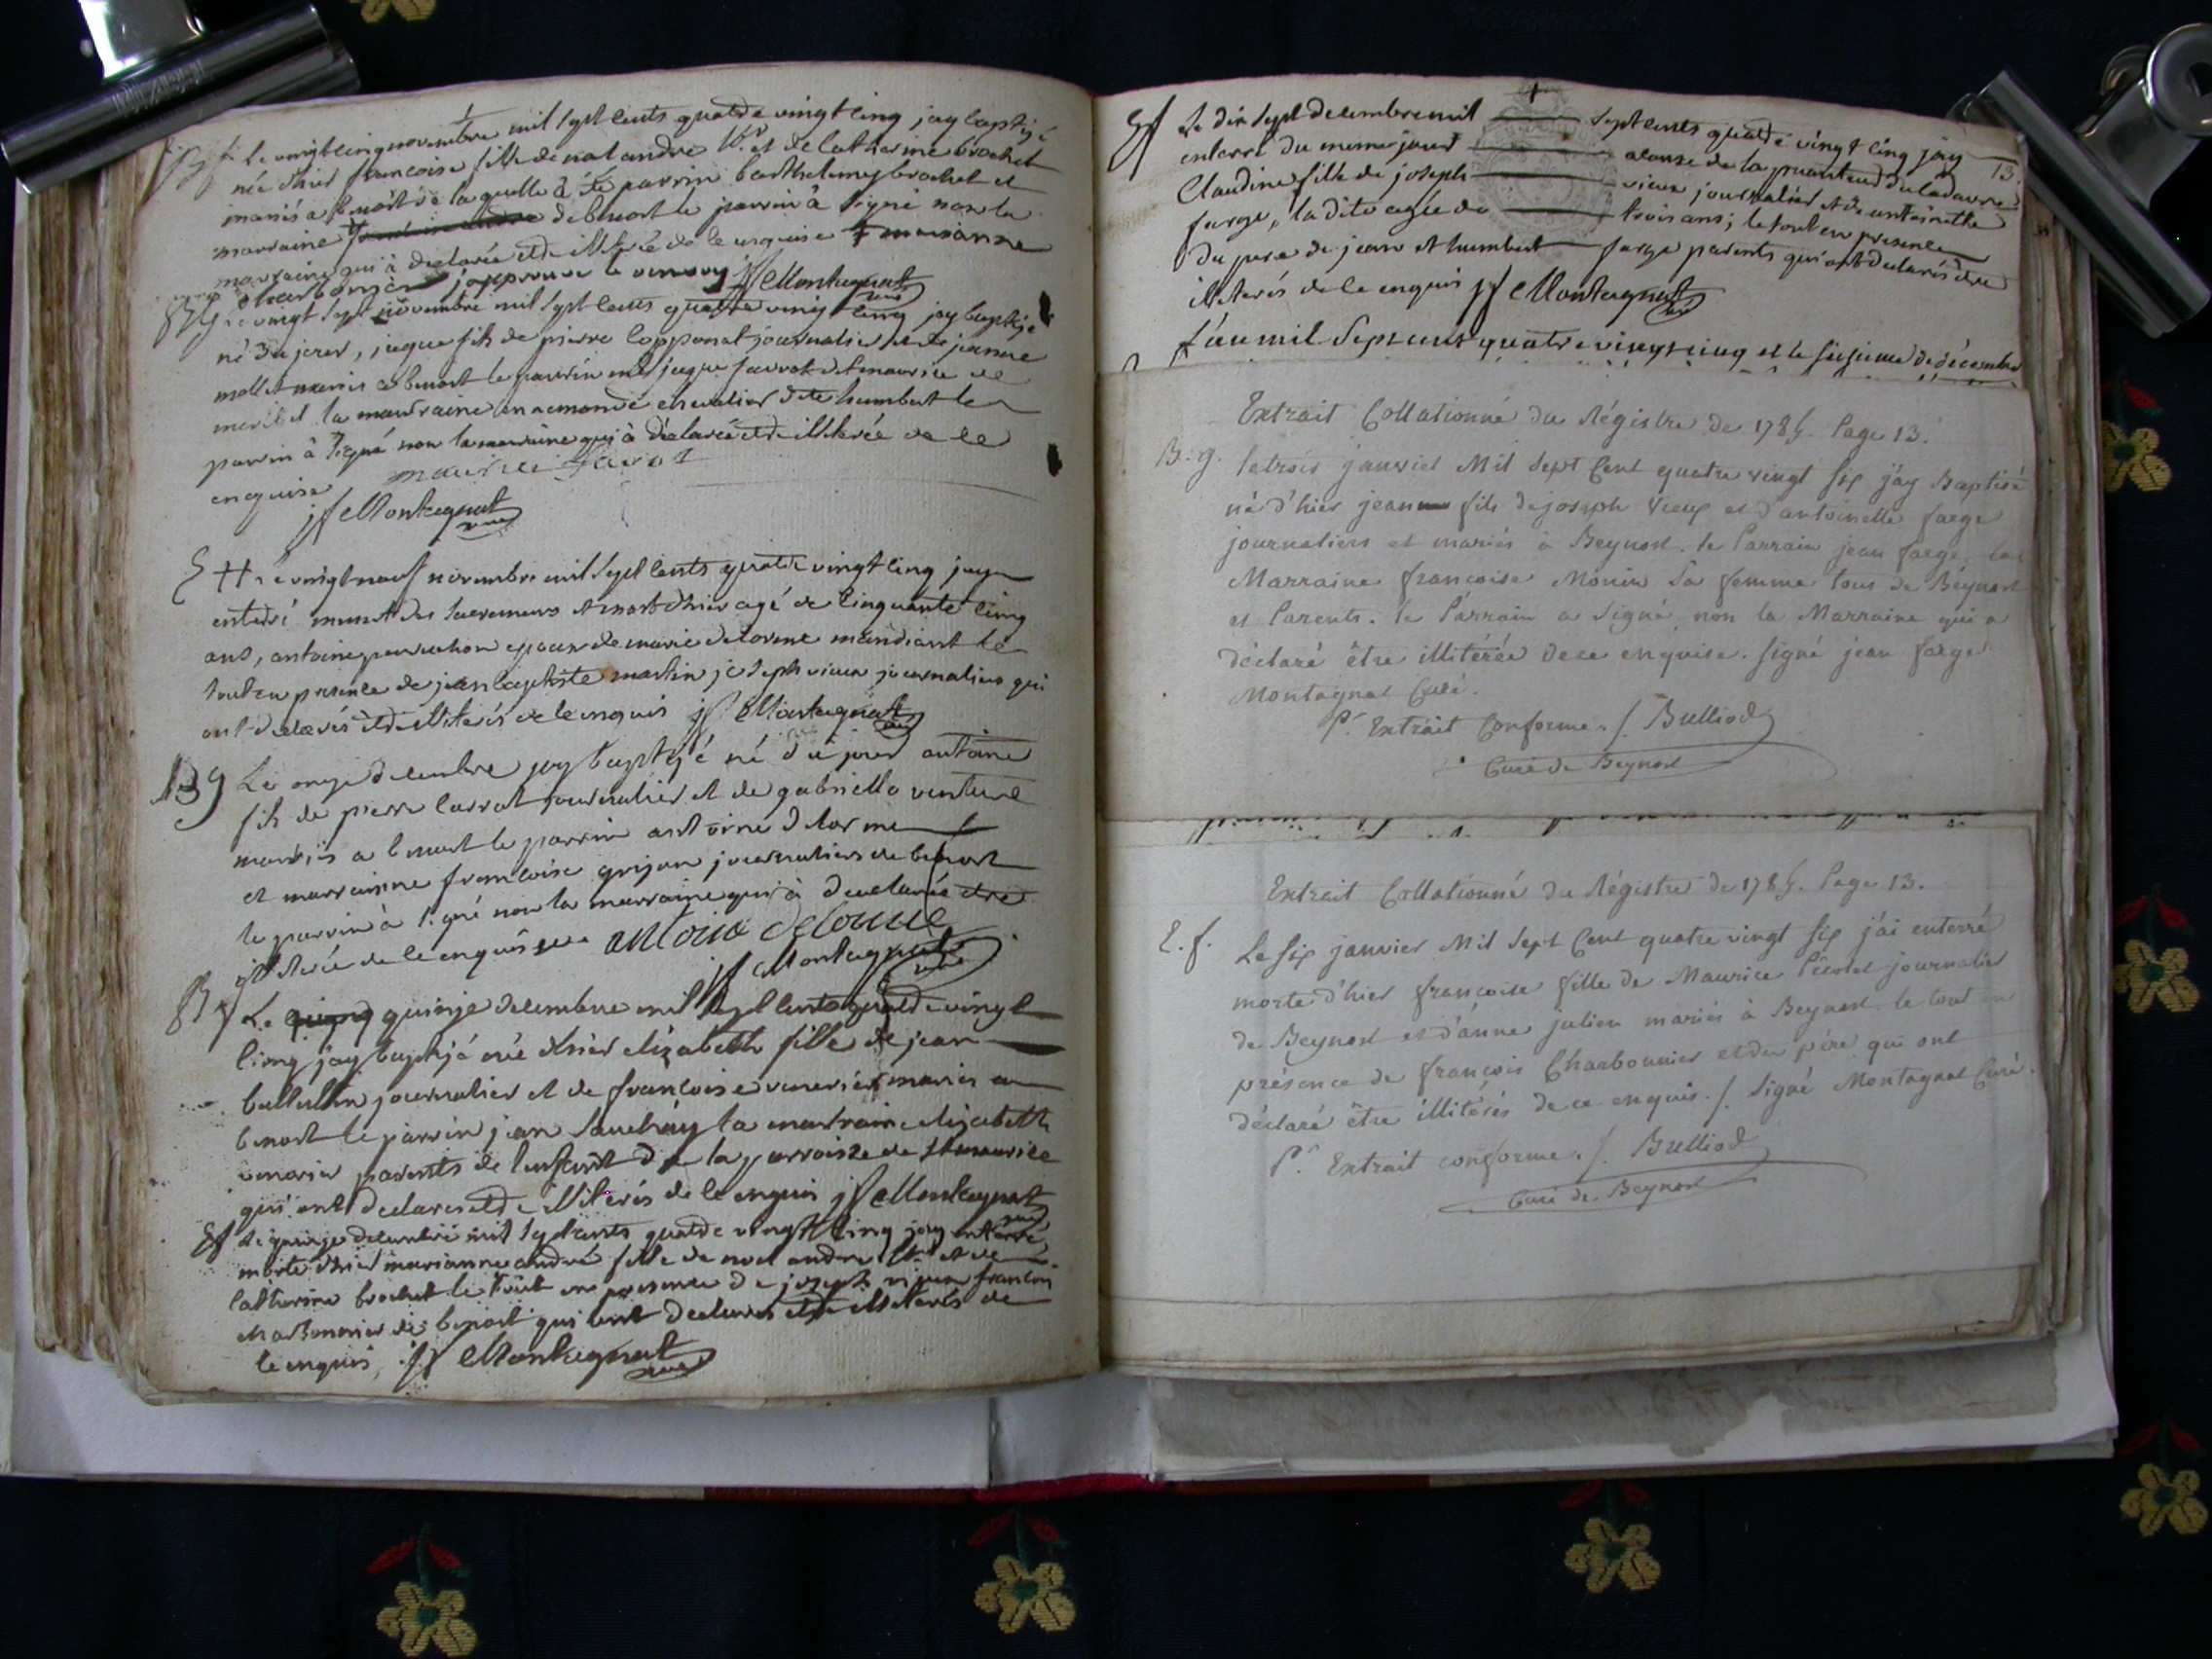 Bf Le vingt cinq novembre mil sept cents quatre vingt cinq jay baptizé
née d'hier francoise fille de noel andré vr. et de catherine brochet
mariés a benost de laquelle à été parrin barthelemy brochet et
marraine de benost le parrin à signé non la
marraine qui à declarée etre illiterée de ce enquise ‡ marianne
charbonier j'approuve le renvoy jf Montagnat curé
Bg Le vingt sept novembre mil sept cents quatre vingt cinq jay baptizé
né du jour, jaque fils de pierre journalier et de jeanne
mollet mariés a benost le parrin me jaque favrot de st maurice de
miribel la marraine chevalier dite humbert le
parrin à signé non la marraine qui à declarée etre illiterée de ce
enquise maurice favrot
jf Montagnat curé
E H Le vingt neuf novembre mil sept cents quatre vingt cinq jay
enterré muni des sacremens et mort d'hier agé de cinquante cinq
ans, antoine epoux de marie delorme mandiant le
tout en presence de jean baptiste martin joseph vieux journaliers qui
ont declarés etre illiterés de ce enquis jf Montagnat curé
Bg Le onze decembre jay baptizé né du jour antoine
fils de pierre carrat journalier et de gabrielle venture
mariés a benost le parrin antoine delorme
et marrainne francoise grijon journaliers de benost
le parrin à signé non la marraine qui à declarée etre
illiterée de ce enquise antoine delorme
jf Montagnat curé
Bf Le quinze decembre mil sept cents quatre vingt
cinq jay baptizé née d'hier elizabeth fille de jean
journalier et de francoise mariés a
benost le parrin jean la marraine elizabeth
parents de l'enfant de la parroisse de st maurice
qui ont declarés etre illiterés de ce enquis jf Montagnat curé
Ef Le quinze decembre mil sept cents quatre vingt cinq jay enterré
morte d'hier marianne andré fille de noel andre vr. et de
catherine brochet le tout en presence de joseph vieux francois
charbonnier de benost qui ont declarés etre illiterés de
ce enquis, jf Montagnat curé
13.
Ef Le dix sept decembre mil sept cents quatre vingt cinq jay
enterré du meme jour a cause de la puanteur du cadavre
Claudine fille de joseph vieux journalier et de antoinette
farge, la dite agée de trois ans; le tout en presence
du pere de jean et humbert farge parents qui ont declarés etre
illiterés de ce enquis jf Montagnat curé
L'an mil sept cents quatre vingt cinq et le sizieme de décembre
Extrait Collationné du Régistre de 1785. Page 13.
B. g. le trois janvier Mil Sept Cent quatre vingt six j'ay Baptisé
né d'hier jean fils de joseph Vieux et d'antoinette farge
journaliers et mariés à Beynost. le Parrain jean farge, la
Marraine françoise Monin Sa femme tous de Beynost
et Parents. le Parrain a signé, non la Marraine qui a
déclaré être illitérée de ce enquise. signé jean farge
Montagnat Curé.
Pr. Extrait Conforme. /. Bulliod
Curé de Beynost
Extrait Collationné du Régistre de 1785. Page 13.
E. f. Le six janvier Mil Sept Cent quatre vingt six j'ai enterré
morte d'hier françoise fille de Maurice journalier
de Beynost et d'anne julien mariés à Beynost. le tout en
présence de françois Charbonnier et du père qui ont
déclaré être illitérés de ce enquis. /. Signé Montagnat Curé.
Pr. Extrait conforme. /. Bulliod
Curé de Beynost